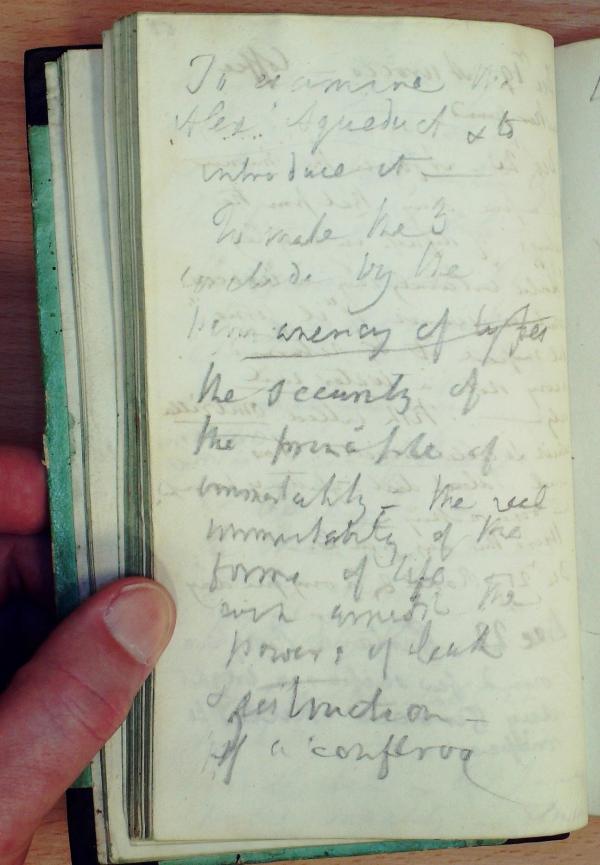 To examine the
Alex. Aqueduct & to
introduce it —
To make the 3
conclude by the
of types
the security of
the principle of
immortality – the real
immortality of the
forms of life
with amidst the
powers of death
destruction –
of a conferva